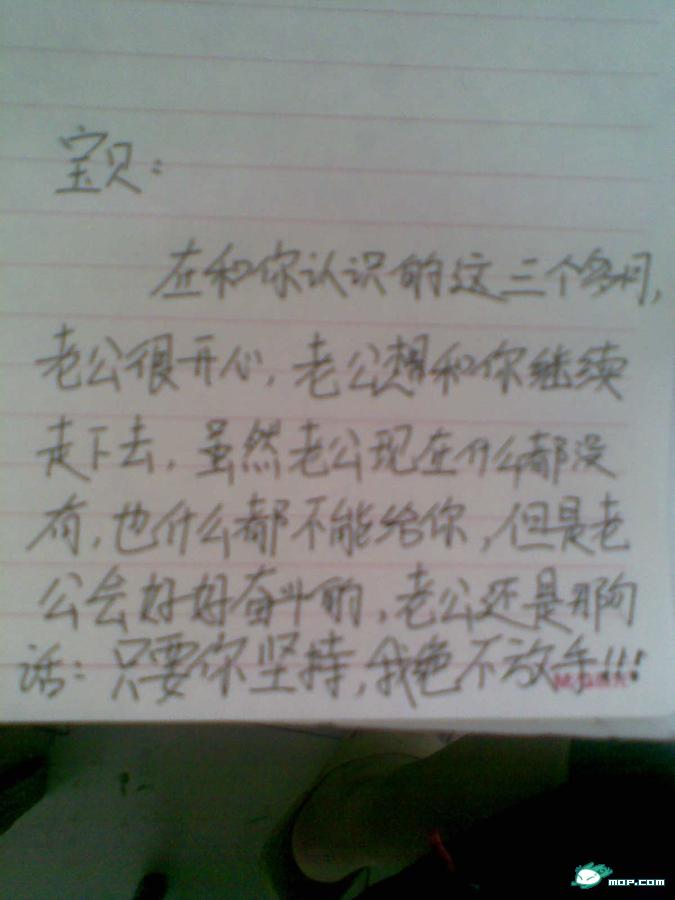 宝贝：
在和你认识的这三个多月，
老公很开心，老公想和你继续
走下去，虽然老公现在什么都没
有，也什么都不能给你，但是老
公会好好奋斗的，老公还是那句
话：只要你坚持，我绝不放手!!!
MOP.COM